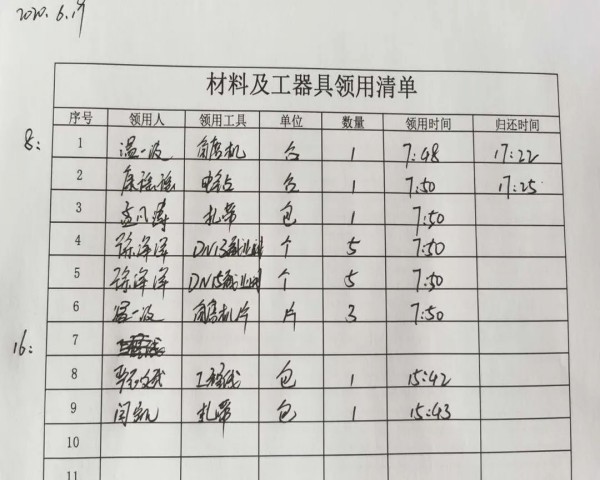 2020.6.19
材料及工器具领用清单
序号 领用人 领用工具 单位 数量 领用时间 归还时间
8:
1 温一波 角磨机 台 1 7:48 17:22
2 台 1 7:50 17:25
3 扎带 包 1 7:50
4 徐洋洋 DN15 个 5 7:50
5 徐洋洋 DN15 个 5 7:50
6 温一波 角磨机片 片 3 7:50
16:
7
8 包 1 15:42
9 闫凯 扎带 包 1 15:43
10
11